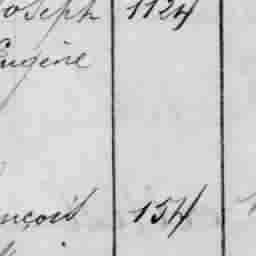 Joseph 1124
Eugène
ançois 154